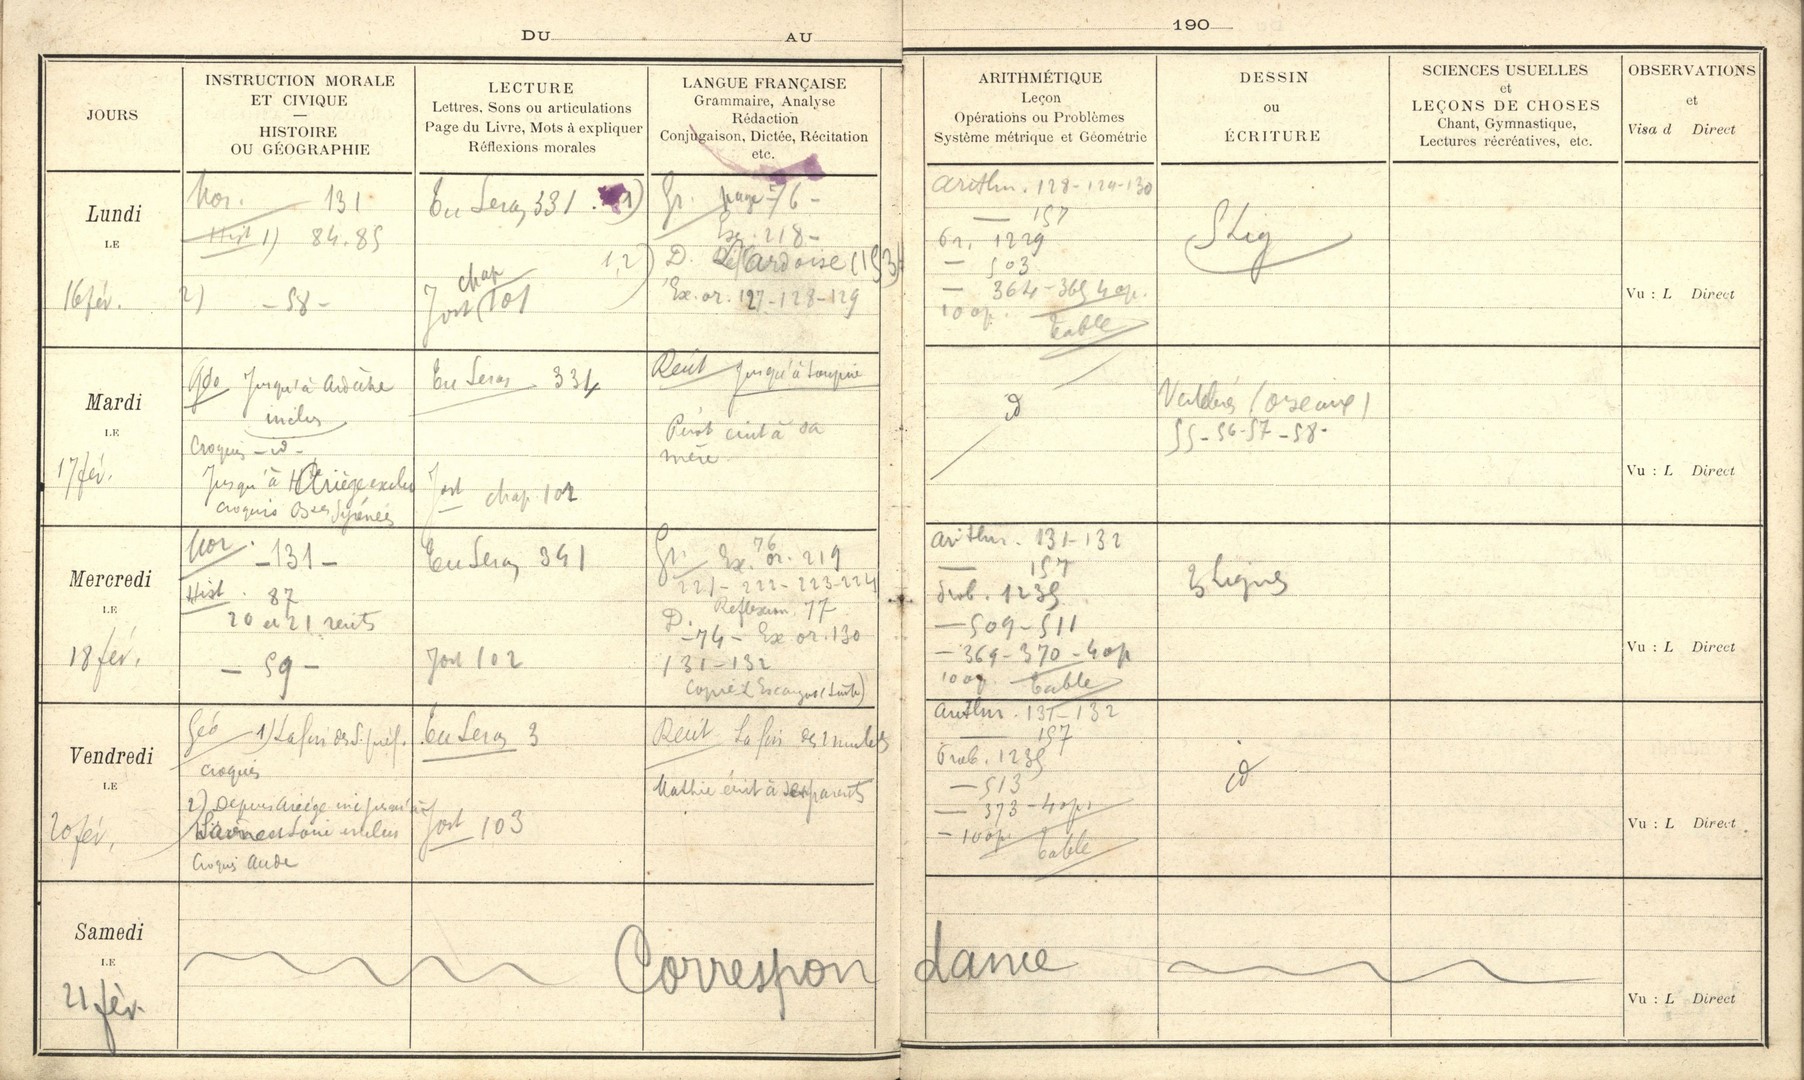 DU AU 190
JOURS
INSTRUCTION MORALE
ET CIVIQUE
—
HISTOIRE
OU GÉOGRAPHIE
LECTURE
Lettres, Sons ou articulations
Page du Livre, Mots à expliquer
Réflexions morales
LANGUE FRANÇAISE
Grammaire, Analyse
Rédaction
Conjugaison, Dictée, Récitation
etc.
ARITHMÉTIQUE
Leçon
Opérations ou Problèmes
Système métrique et Géométrie
DESSIN
ou
ÉCRITURE
SCIENCES USUELLES
et
LEÇONS DE CHOSES
Chant, Gymnastique,
Lectures récréatives, etc.
OBSERVATIONS
et
Visa d Direct
Lundi
LE
16 fév.
Mor. 131
Hist 1) 84.85
2) - 58 -
Tu Seras 331. 1)
chap
Jost 101
1,2)
Gr. page 76 -
Ex. 218 -
D. L'ardoise (153)
Ex. or. 127-128-129
Arithm. 128-129-130
— 157
Pr. 1229
— 503
— 364-365 4 op.
10 op. table
5 Lig
Vu : L Direct
Mardi
LE
17 fév.
Géo Jusqu'à Ardèche
inclus
Croquis - id -
Jusqu'à Ariège exclu
croquis Bses Pyrénées
Tu Seras 334
Jost chap. 102
Récit jusqu'à
écrit à sa
mère
id
(oiseaux)
55-56-57-58-
Vu : L Direct
Mercredi
LE
18 fév.
Mor. - 131 -
Hist. 87
20 et 21 récits
- 59 -
Tu Seras 341
Jost 102
Gr. 76 Ex. or. 219
221-222-223-224
Réflexion. 77
D. -74- Ex or. 130
131-132
Copie L'Escargot (suite)
Arithm. 131-132
— 157
Prob. 1235
— 509-511
— 369-370-4 op
10 op. table
3 Lignes
Vu : L Direct
Vendredi
LE
20 fév.
Géo 1) La fin des S. préf.
croquis
2) Depuis Ariège inc jusqu'à
inclus
Croquis Aude
Tu Seras 3
Jost 103
Récit La fin des 2 mulets
Mathieu écrit à ses parents
Arithm. 131-132
— 157
Prob. 1235
— 513
— 373-4 op.
— 10 op. table
id
Vu : L Direct
Samedi
LE
21 fév.
Correspondance
Vu : L Direct